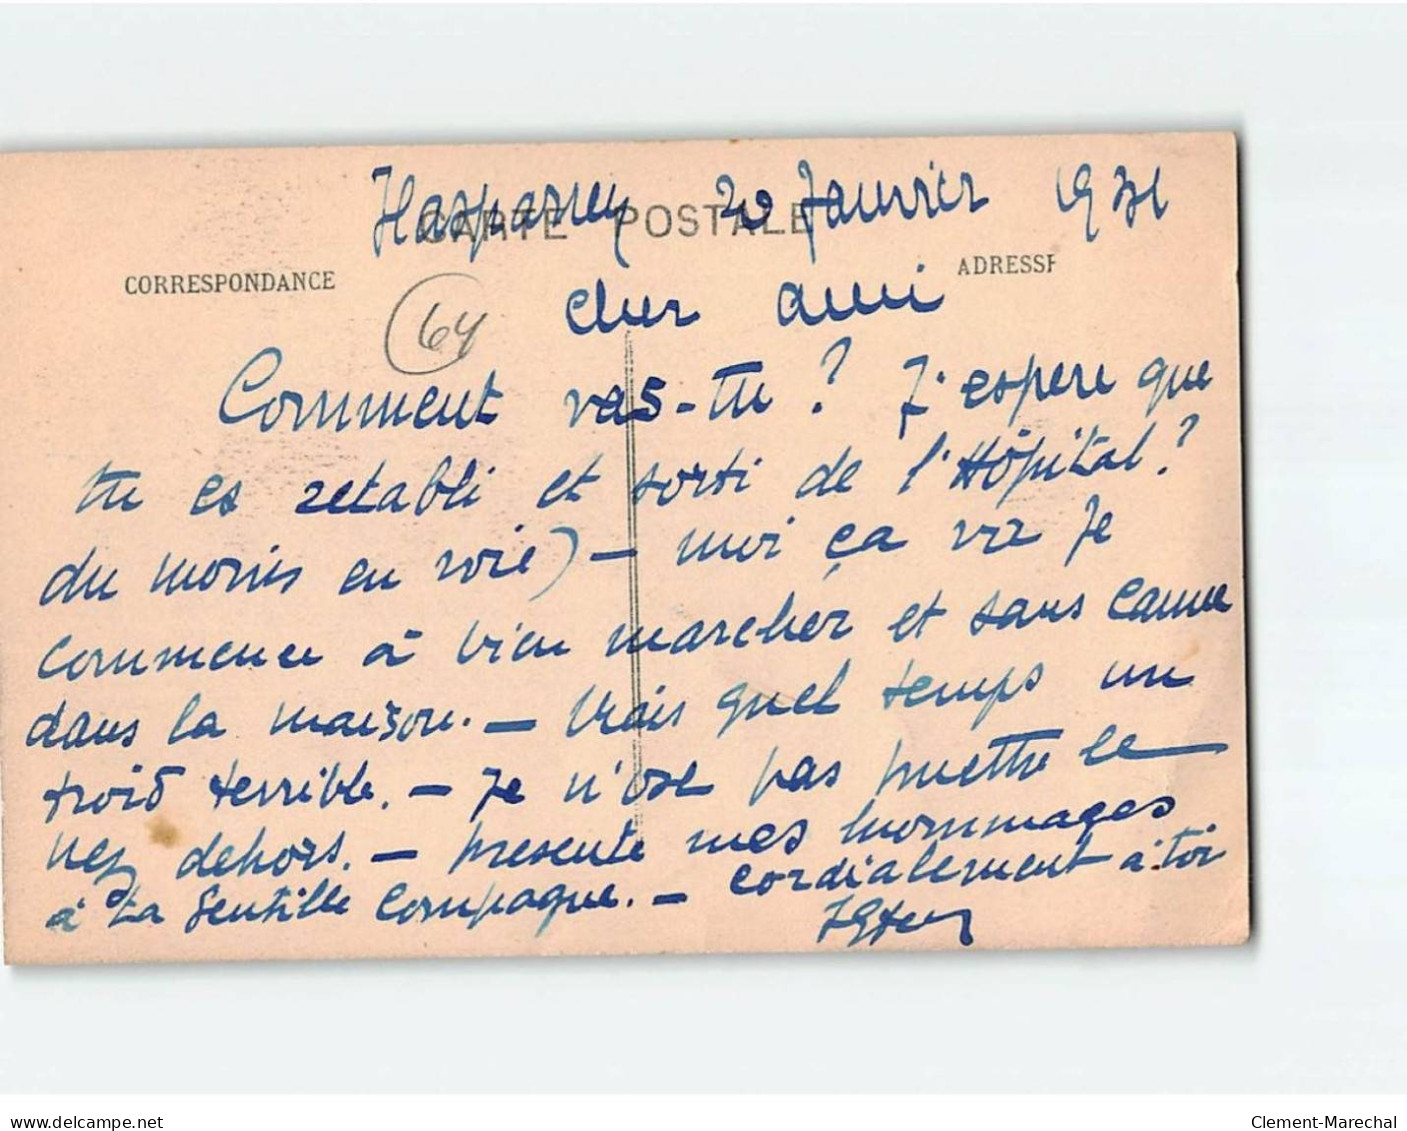 Hasparren 20 Janvier 1931
CARTE POSTALE
CORRESPONDANCE
ADRESSE
64
Cher ami
Comment vas-tu ? J'espere que
tu es retabli et sorti de l'Hôpital ?
du moins en voie) - moi ça va Je
commence à bien marcher et sans canne
dans la maison. - Mais quel temps un
froid terrible. - Je n'ose pas mettre le
nez dehors. - presente mes hommages
à ta Gentille Compagne. - cordialement à toi
delcampe.net
Clement-Marechal